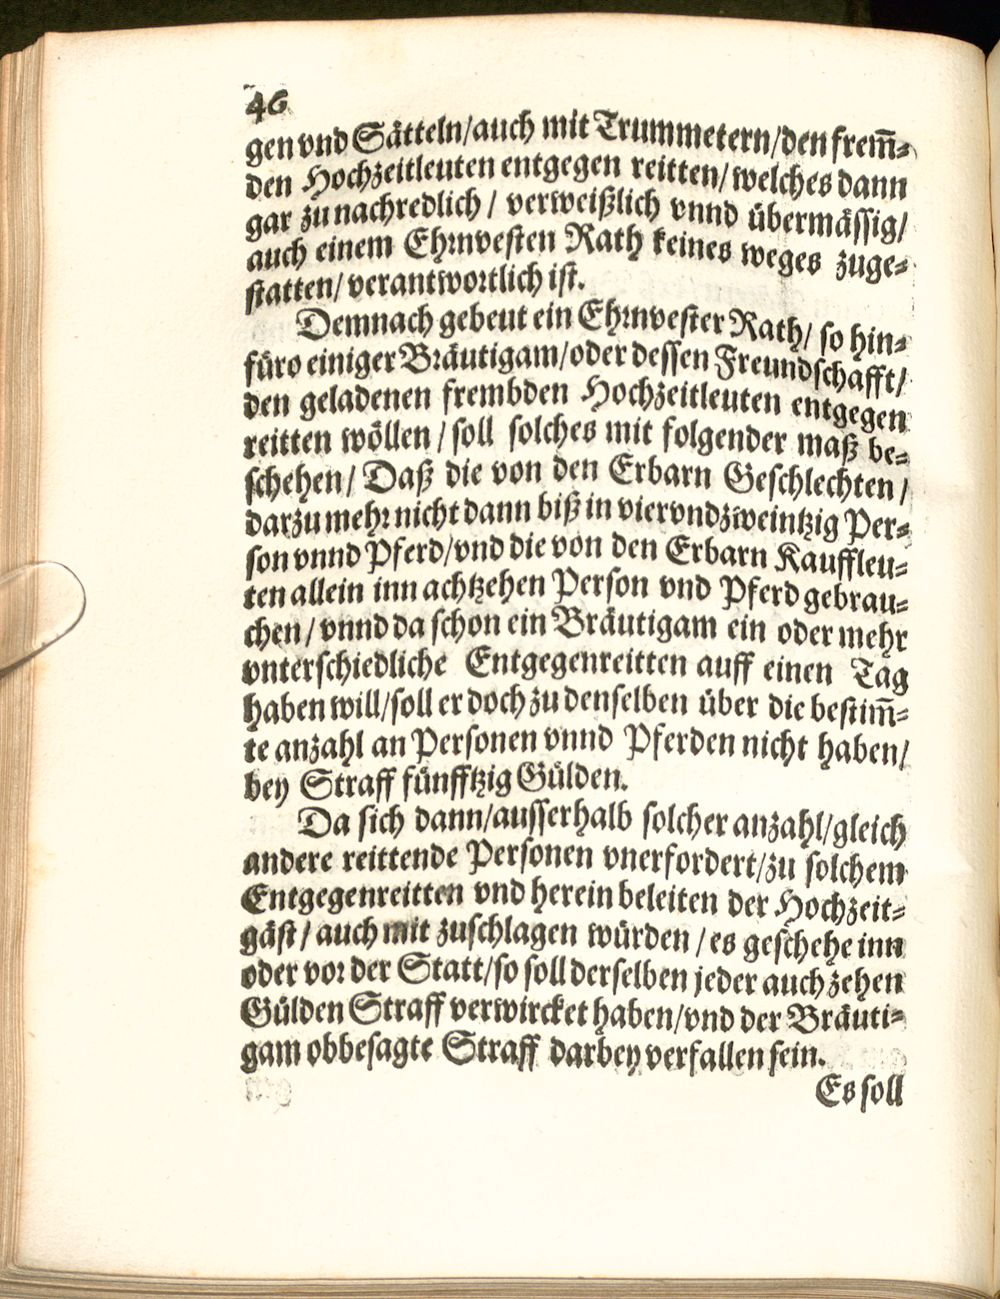 46
gen vnd Sätteln/auch mit Trummetern/den frem̃⸗
den Hochzeitleuten entgegen reitten/welches dann
gar zu nachredlich / verweißlich vnnd übermässig/
auch einem Ehrnvesten Rath keines weges zuge⸗
statten/verantwortlich ist.
Demnach gebeut ein Ehrnvester Rath/ so hin⸗
füro einiger Bräutigam/oder dessen Freundschafft/
den geladenen frembden Hochzeitleuten entgegen
reitten wöllen / soll solches mit folgender maß be⸗
schehen/ Daß die von den Erbarn Geschlechten /
darzu mehr nicht dann biß in viervndzweintzig Per⸗
son vnnd Pferd/vnd die von den Erbarn Kauffleu⸗
ten allein inn achtzehen Person vnd Pferd gebrau⸗
chen / vnnd da schon ein Bräutigam ein oder mehr
vnterschiedliche Entgegenreitten auff einen Tag
haben will/soll er doch zu denselben über die bestim̃⸗
te anzahl an Personen vnnd Pferden nicht haben/
bey Straff fünfftzig Gülden.
Da sich dann/ausserhalb solcher anzahl/gleich
andere reittende Personen vnerfordert/zu solchem
Entgegenreitten vnd herein beleiten der Hochzeit⸗
gäst / auch mit zuschlagen würden / es geschehe inn
oder vor der Statt/so soll derselben jeder auch zehen
Gülden Straff verwircket haben/vnd der Bräuti⸗
gam obbesagte Straff darbey verfallen sein.
Es soll